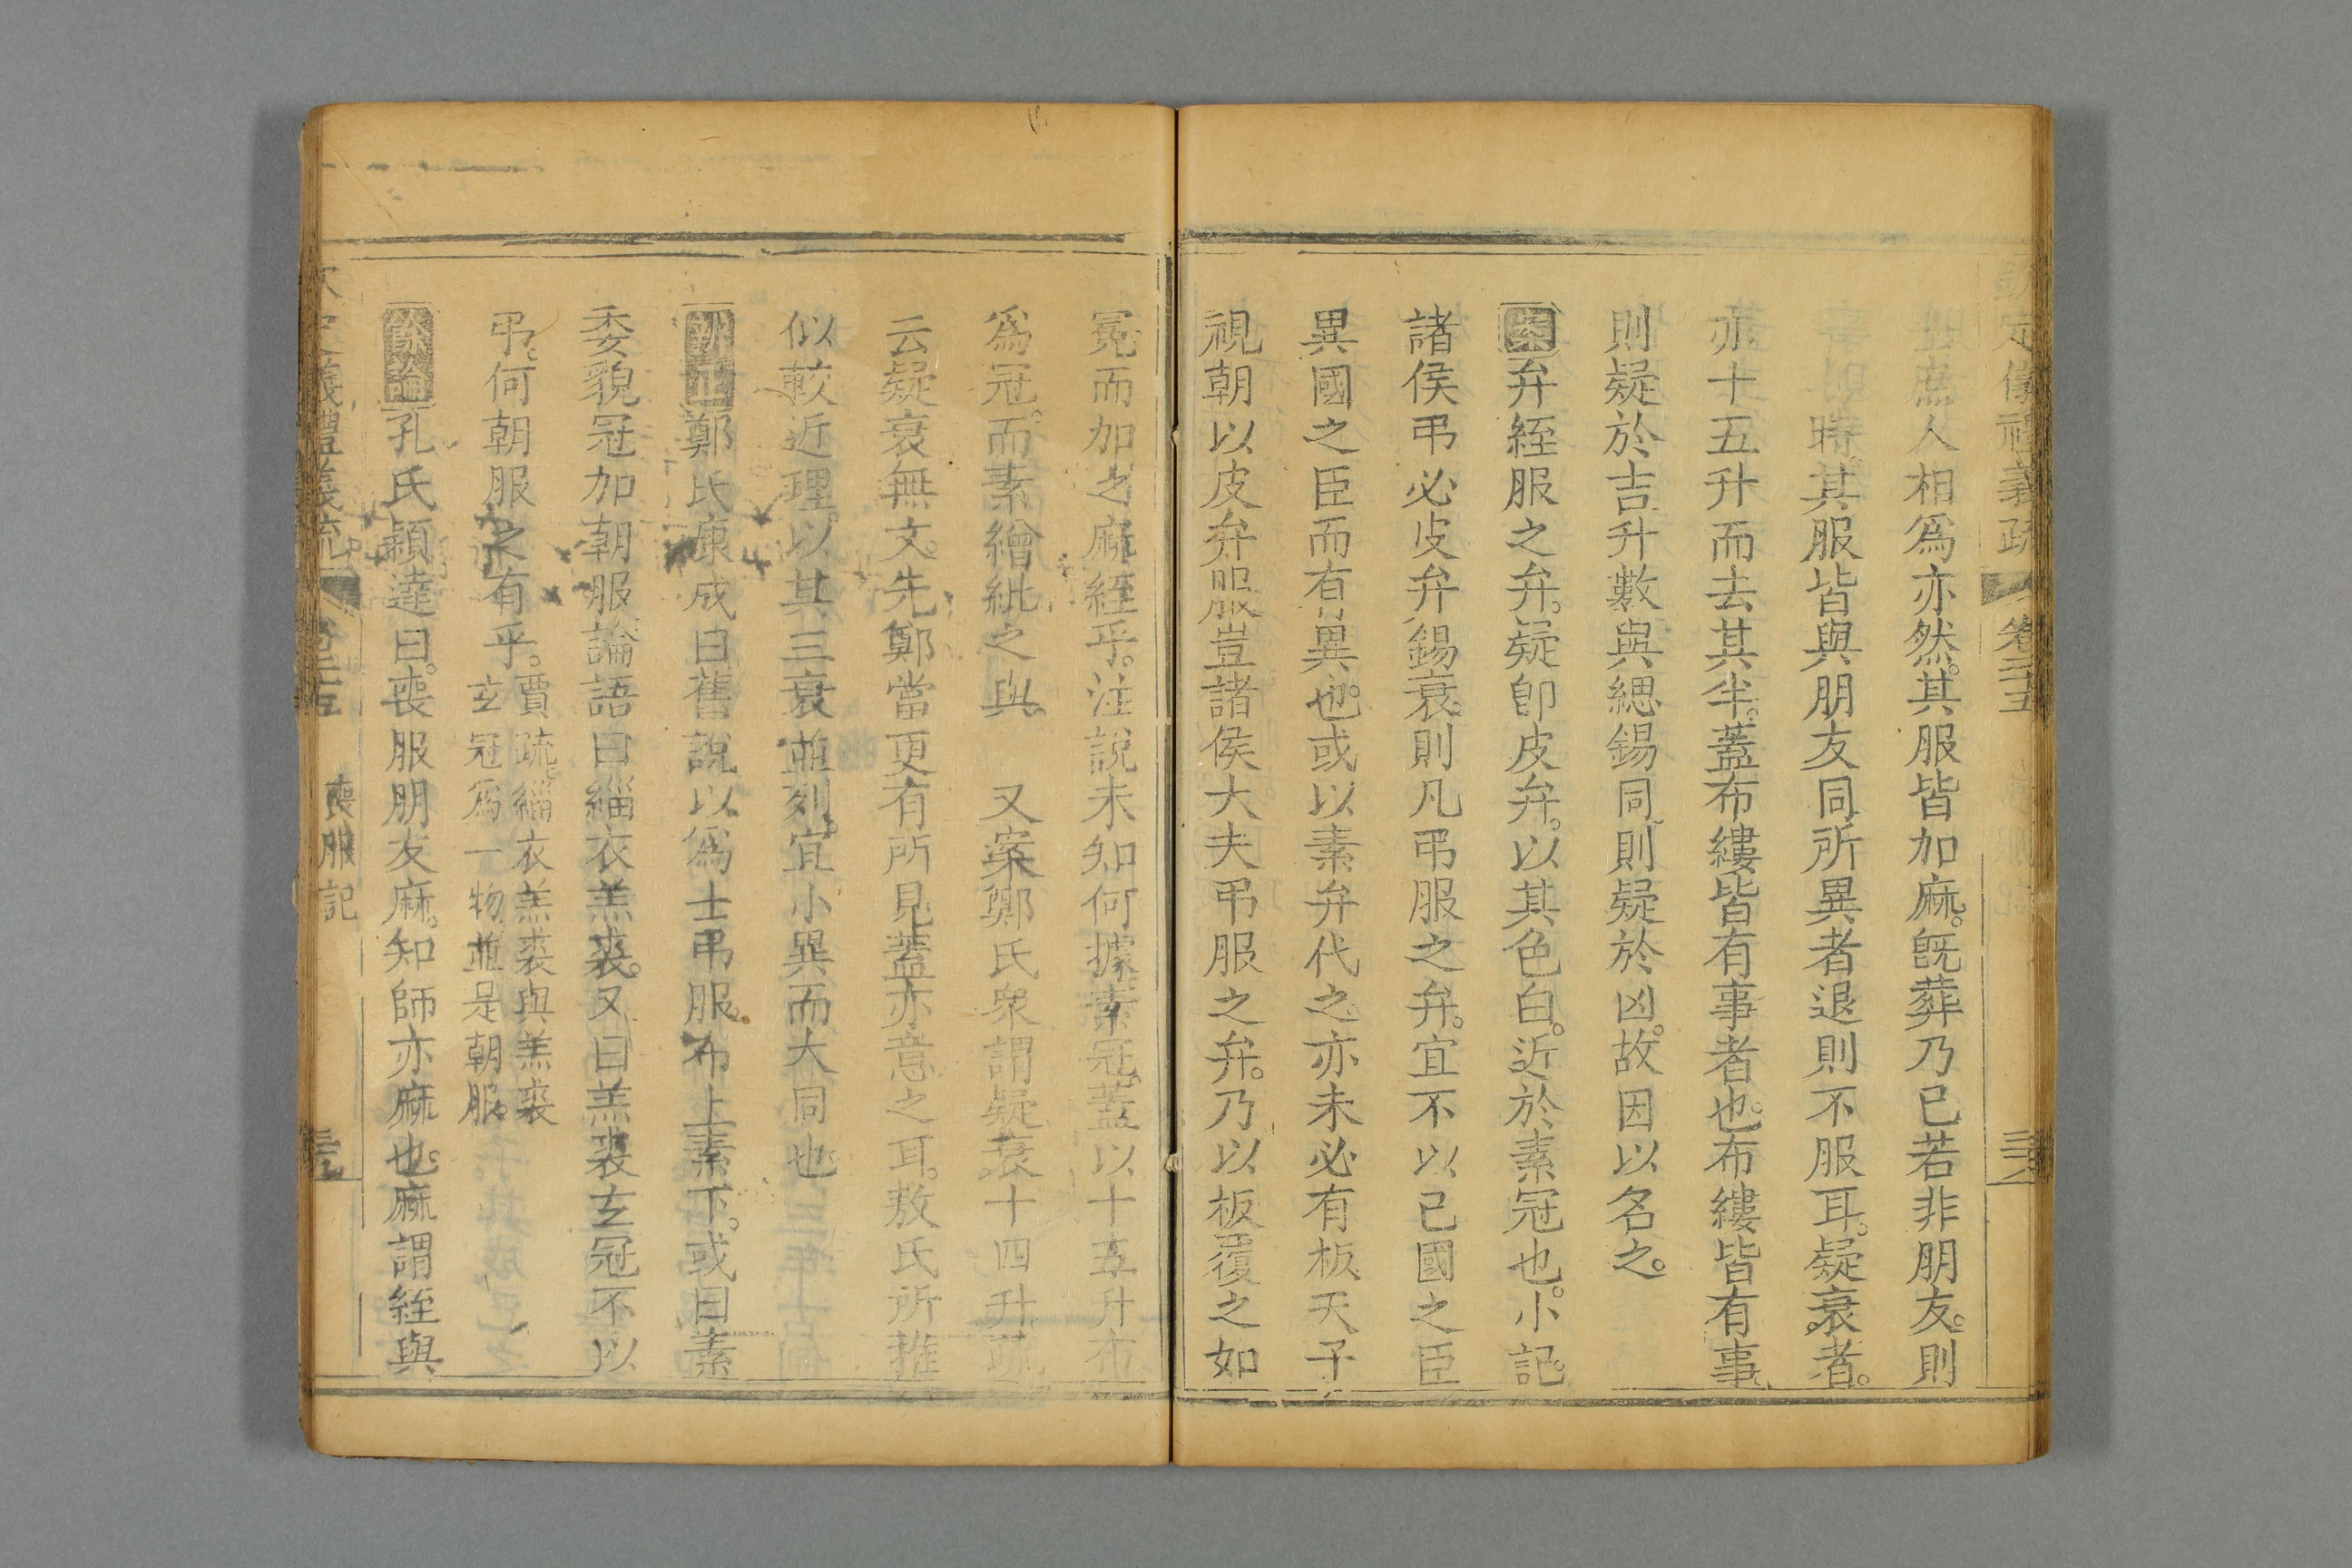 定儀禮義疏 卷二十五
庶人相爲亦然。其服皆加麻。旣葬乃已若非朋友。則
時其服皆與朋友同所異者退則不服耳。疑衰者。
亦十五升而去其半。蓋布縷皆有事者也。布縷皆有事。
則疑於吉升數與緦錫同則疑於凶。故因以名之。
案弁絰服之弁。疑卽皮弁。以其色白。近於素冠也。小記。
諸侯弔必皮弁錫衰。則凡弔服之弁。宜不以己國之臣
異國之臣而有異也。或以素弁代之亦未必有板天子
視朝以皮弁服豈諸侯大夫弔服之弁。乃以板覆之如
冕而加之麻絰乎。注說未知何據素冠蓋以十五升布
爲冠。而素繒紕之與 又案鄭氏衆謂疑衰十四升疏
云疑衰無文。先鄭當更有所見蓋亦意之耳。敖氏所推
似較近理。以其三衰竝列。宜小異而大同也
訂正鄭氏康成曰舊說以爲士弔服。布上素下。或曰素
委貌冠加朝服論語曰緇衣羔裘。又曰羔裘玄冠不以
弔。何朝服之有乎。賈疏緇衣羔裘與羔裘
玄冠爲一物竝是朝服。
餘論孔氏穎達曰。喪服朋友麻。知師亦麻也。麻謂絰與
義禮義疏 卷二十五 喪服記